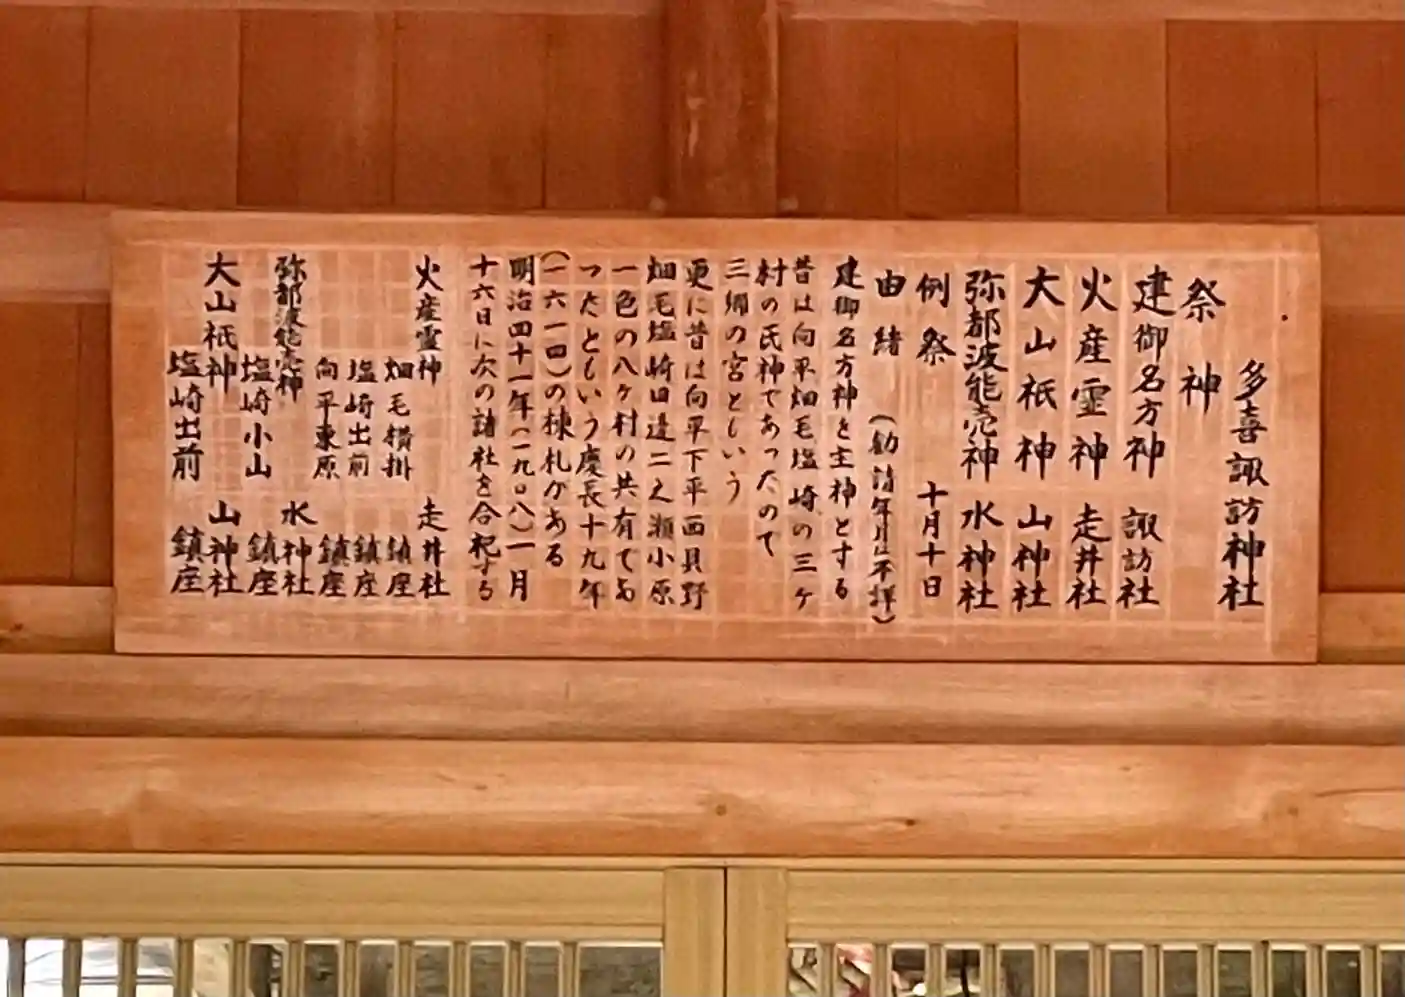 多喜諏訪神社
祭神
建御名方神 諏訪社
火産霊神 走井社
大山祇神 山神社
弥都波能売神 水神社
例祭 十月十日
由緒 (勧請年月は不詳)
建御名方神を主神とする
昔は向平畑毛塩崎の三ヶ
村の氏神であったので
三郷の宮という
更に昔は向平下平西貝野
畑毛塩崎田辺二之瀬小原
一色の八ヶ村の共有であ
ったともいう慶長十九年
(一六一四)の棟札がある
明治四十一年(一九〇八)一月
十六日に次の諸社を合祀する
火産霊神 走井社
畑毛横掛 鎮座
塩崎出前 鎮座
向平東原 鎮座
弥都波能売神 水神社
塩崎小山 鎮座
大山祇神 山神社
塩崎出前 鎮座